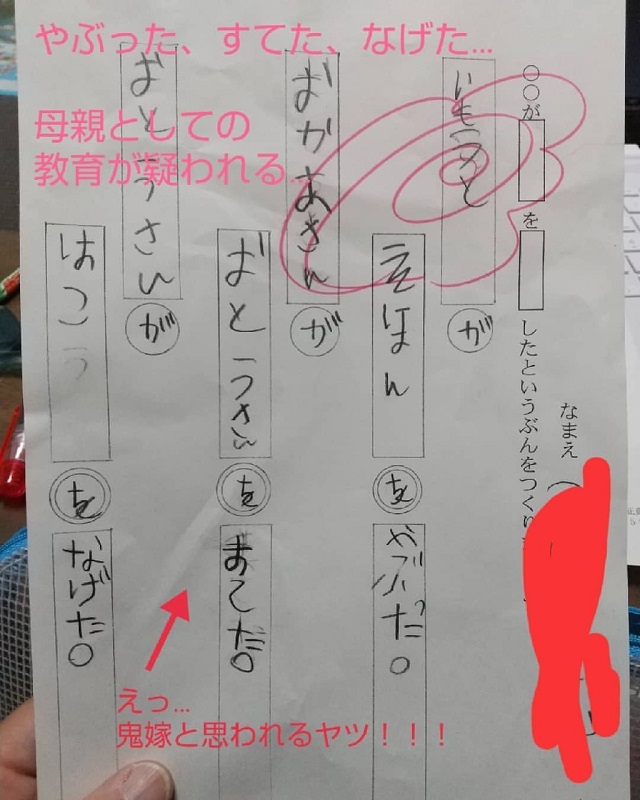 やぶった、すてた、なげた...
母親としての
教育が疑われる...
○○が を したというぶんをつくり
なまえ
いもうと が えほん を やぶった。
おかあさん が おとうさん を すてた。
おとうさん が はこう を なげた。
えっ...
鬼嫁と思われるヤツ！！！